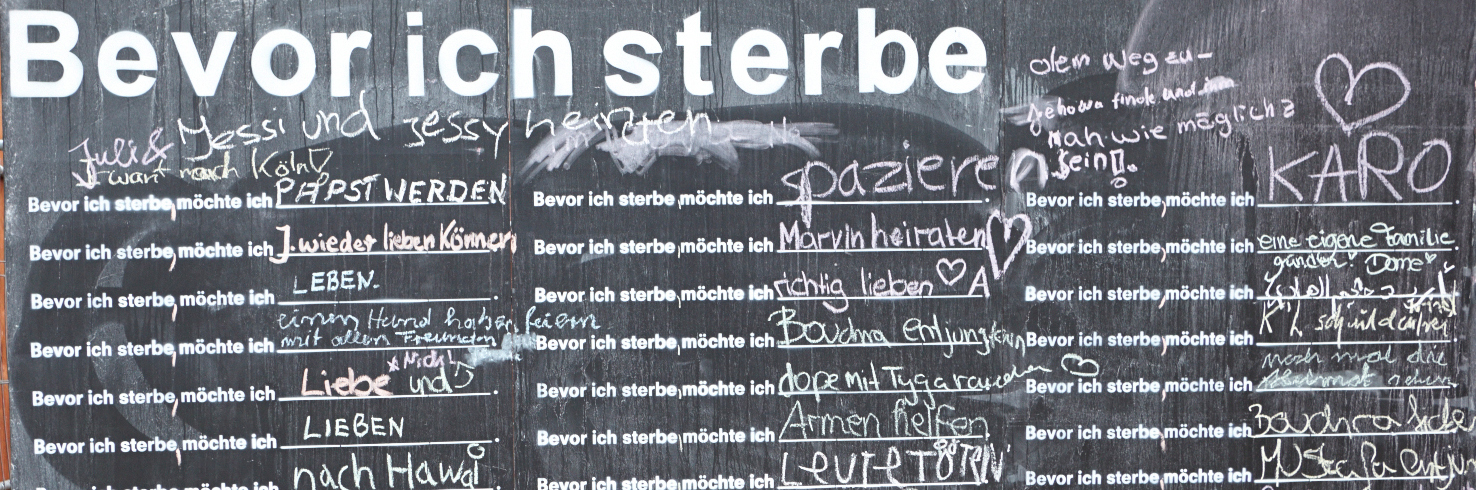 Bevor ich sterbe
Juli & Jessi und Jessy heiraten
nach Köln
Bevor ich sterbe, möchte ich PAPST WERDEN
Bevor ich sterbe, möchte ich wieder lieben Können
Bevor ich sterbe, möchte ich LEBEN.
einen Hund haben, feiern
Bevor ich sterbe, möchte ich mit allen Freunden
Nicht
Bevor ich sterbe, möchte ich Liebe und
Bevor ich sterbe, möchte ich LIEBEN
nach Hawai
Bevor ich sterbe, möchte ich spazieren
Bevor ich sterbe, möchte ich Marvin heiraten
Bevor ich sterbe, möchte ich richtig lieben A
Bevor ich sterbe, möchte ich
Bevor ich sterbe, möchte ich dope mit Tyga rauchen
Bevor ich sterbe, möchte ich Armen helfen
Bevor ich sterbe, möchte ich LEUTE TÖTEN
dem Weg zu
Jehowa finde und
nah wie möglich z
sein!
Bevor ich sterbe, möchte ich KARO
Bevor ich sterbe, möchte ich eine eigene Familie
Bevor ich sterbe, möchte ich
Bevor ich sterbe, möchte ich
noch mal die
Bevor ich sterbe, möchte ich
Bevor ich sterbe, möchte ich
Bevor ich sterbe, möchte ich